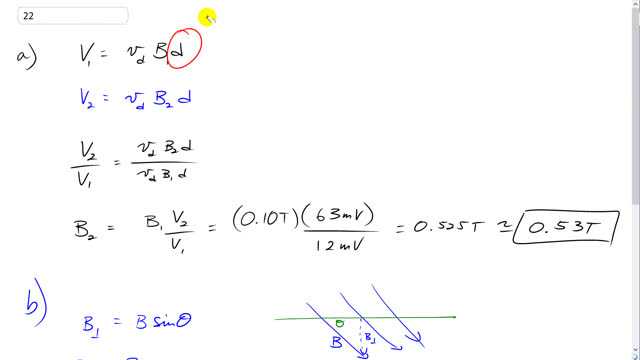 22
a) V₁ = v_d B₁ d
V₂ = v_d B₂ d
V₂ / V₁ = v_d B₂ d / v_d B₁ d
B₂ = B₁ V₂ / V₁ = (0.10T)(63mV) / 12mV = 0.525T ≈ 0.53T
b) B⊥ = B sinθ
θ
B B⊥